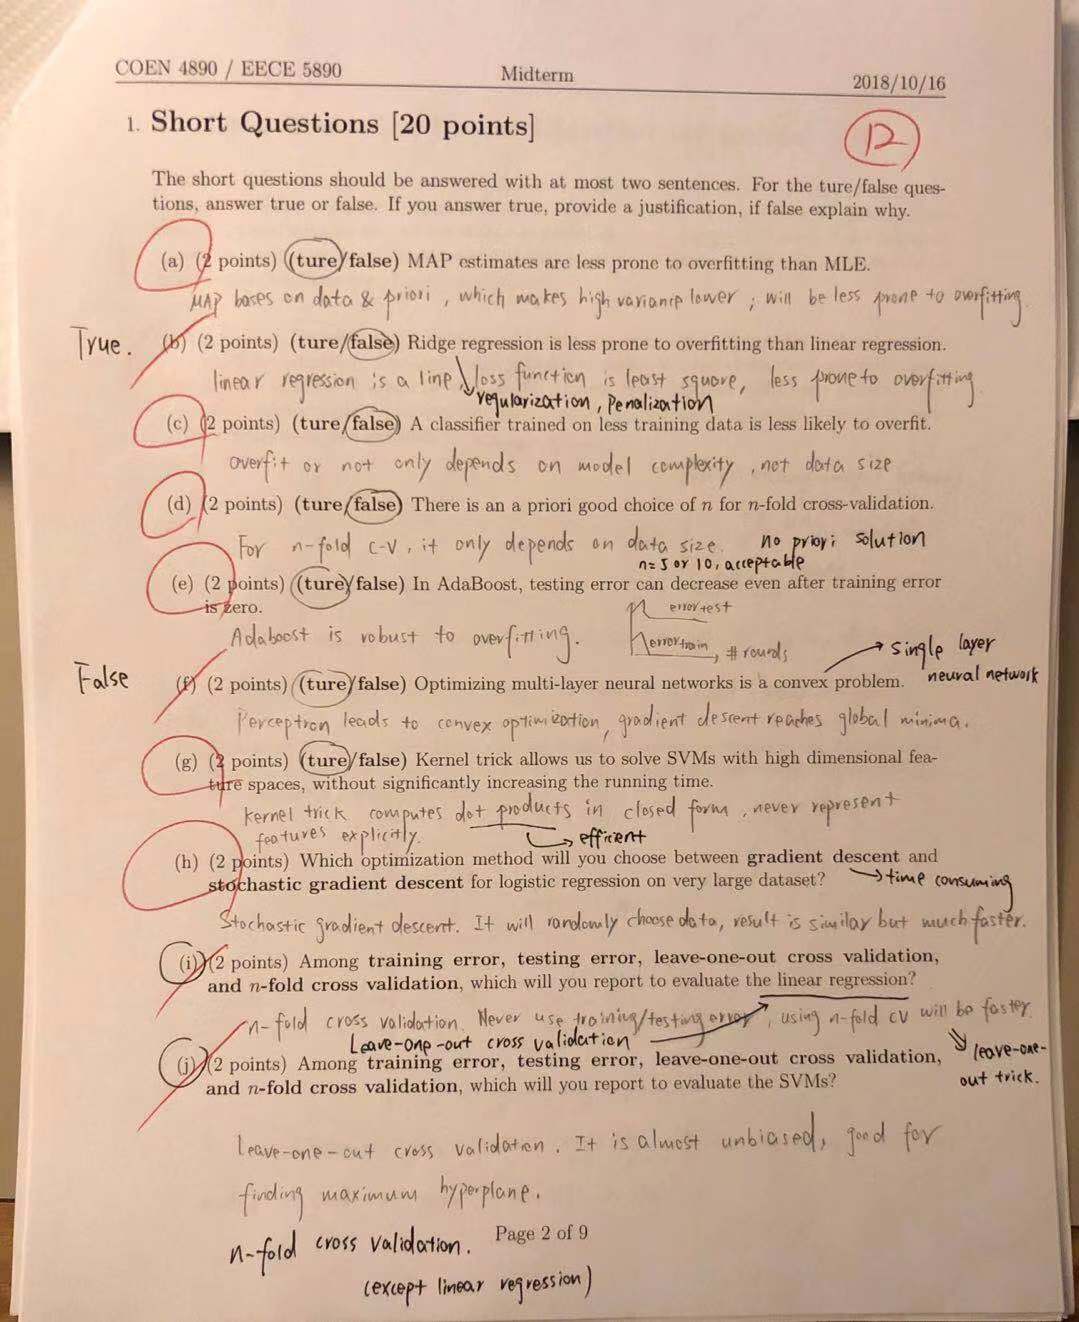 COEN 4890 / EECE 5890 Midterm 2018/10/16
1. Short Questions [20 points]
12
The short questions should be answered with at most two sentences. For the ture/false ques-
tions, answer true or false. If you answer true, provide a justification, if false explain why.
(a) (2 points) (ture/false) MAP estimates are less prone to overfitting than MLE.
MAP bases on data & priori, which makes high variance lower; will be less prone to overfitting.
True. (b) (2 points) (ture/false) Ridge regression is less prone to overfitting than linear regression.
linear regression is a line, loss function is least square, less prone to overfitting
regularization, penalization
(c) (2 points) (ture/false) A classifier trained on less training data is less likely to overfit.
overfit or not only depends on model complexity, not data size
(d) (2 points) (ture/false) There is an a priori good choice of n for n-fold cross-validation.
For n-fold c-v, it only depends on data size. no priori solution
n=5 or 10, acceptable
(e) (2 points) (ture/false) In AdaBoost, testing error can decrease even after training error
is zero.
error test
Adaboost is robust to overfitting.
error train, # rounds
single layer
neural network
False (f) (2 points) (ture/false) Optimizing multi-layer neural networks is a convex problem.
Perceptron leads to convex optimization, gradient descent reaches global minima.
(g) (2 points) (ture/false) Kernel trick allows us to solve SVMs with high dimensional fea-
ture spaces, without significantly increasing the running time.
kernel trick computes dot products in closed form, never represent
features explicitly. efficient
(h) (2 points) Which optimization method will you choose between gradient descent and
stochastic gradient descent for logistic regression on very large dataset? time consuming
Stochastic gradient descent. It will randomly choose data, result is similar but much faster.
(i) (2 points) Among training error, testing error, leave-one-out cross validation,
and n-fold cross validation, which will you report to evaluate the linear regression?
n-fold cross validation. Never use training/testing error, using n-fold cv will be faster.
Leave-one-out cross validation
leave-one-
out trick.
(j) (2 points) Among training error, testing error, leave-one-out cross validation,
and n-fold cross validation, which will you report to evaluate the SVMs?
leave-one-out cross validation. It is almost unbiased, good for
finding maximum hyperplane.
Page 2 of 9
n-fold cross validation.
(except linear regression)